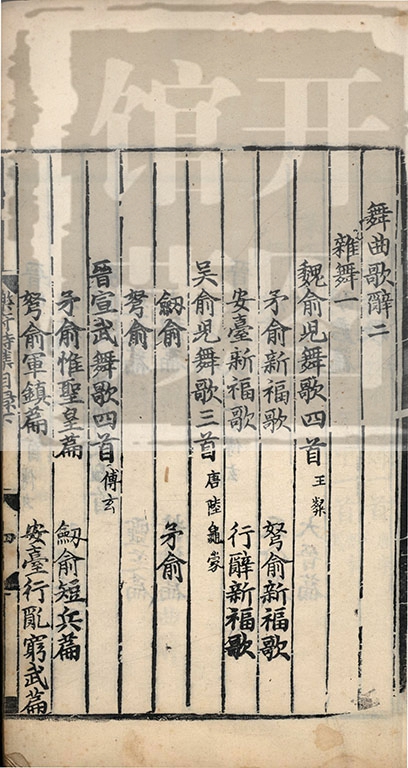 舞曲歌辭二
雜舞一
魏俞兒舞歌四首 王粲
矛俞新福歌 弩俞新福歌
安臺新福歌 行辭新福歌
吳俞兒舞歌三首 唐陸龜蒙
劒俞 矛俞
弩俞
晉宣武舞歌四首 傅玄
矛俞惟聖皇篇 劒俞短兵篇
弩俞軍鎮篇 安臺行亂窮武篇